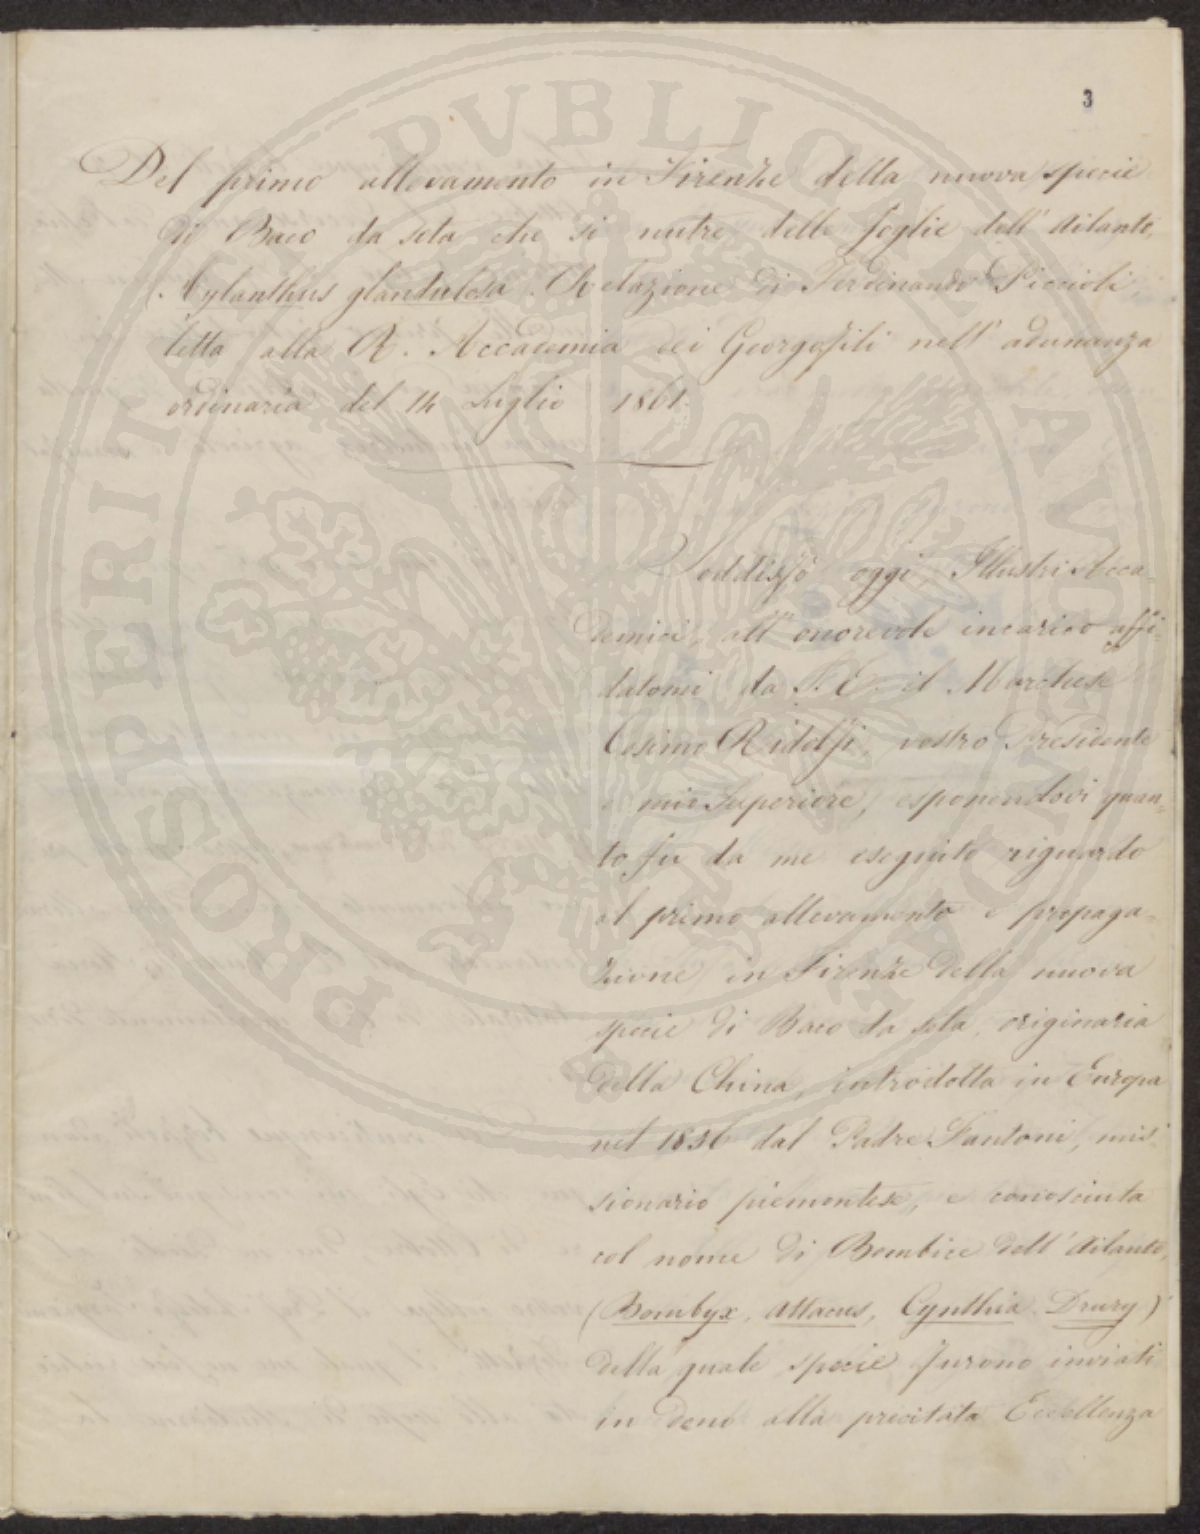 3
Del primo allevamento in Firenze della nuova specie
di Baco da seta che si nutre delle foglie dell'Ailanto,
(Aylanthus glandulosa. Relazione di Ferdinando Piccioli,
letta alla R. Accademia dei Georgofili nell'adunanza
ordinaria del 14 Luglio 1861.
Soddisfo oggi, Illustri Acca-
demici, all'onorevole incarico affi-
datomi da S. E. il Marchese
Cosimo Ridolfi, vostro Presidente
e mio Superiore, esponendovi quan-
to fu da me eseguito riguardo
al primo allevamento e propaga-
zione in Firenze della nuova
specie di Baco da seta, originaria
della China, introdotta in Europa
nel 1856 dal Padre Fantoni, mis-
sionario piemontese, e conosciuta
col nome di Bombice dell'Ailanto,
(Bombyx, Attacus, Cynthia Drury)
della quale specie furono inviati
in dono alla precitata Eccellenza
PROSPERITATI PVBLICAE AVGENDAE